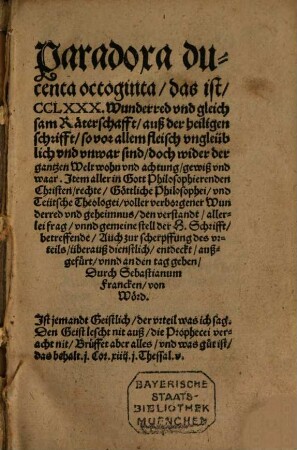 Paradoxa du-
centa octoginta/ das ist/
CCLXXX. Wunderred vnd gleich
sam Räterschafft/ auß der heiligen
schrifft/ so vor allem fleisch vngleüb-
lich vnd vnwar sind/ doch wider der
gantzen Welt wohn vnd achtung/ gewiß vnd
waar. Item aller in Gott Philosophierenden
Christen/ rechte/ Göttliche Philosophei/ vnd
Teütsche Theologei/ voller verborgener Wun
derred vnd geheimnus/ den verstandt/ aller-
lei frag/ vnnd gemeine stell der H. Schrifft/
betreffende/ Auch zur scherpffung des vr-
teils/ überauß dienstlich/ entdeckt/ auß-
gefürt/ vnnd an den tag geben/
Durch Sebastianum
Francken/ von
Wörd.
Ist jemandt Geistlich/ der vrteil was ich sag.
Den Geist lescht nit auß/ die Prophecei ver-
acht nit/ Brüffet aber alles/ vnd was güt ist/
das behalt. j. Cor. xiiij. j. Thessal. v.
BAYERISCHE
STAATS-
BIBLIOTHEK
MUENCHEN